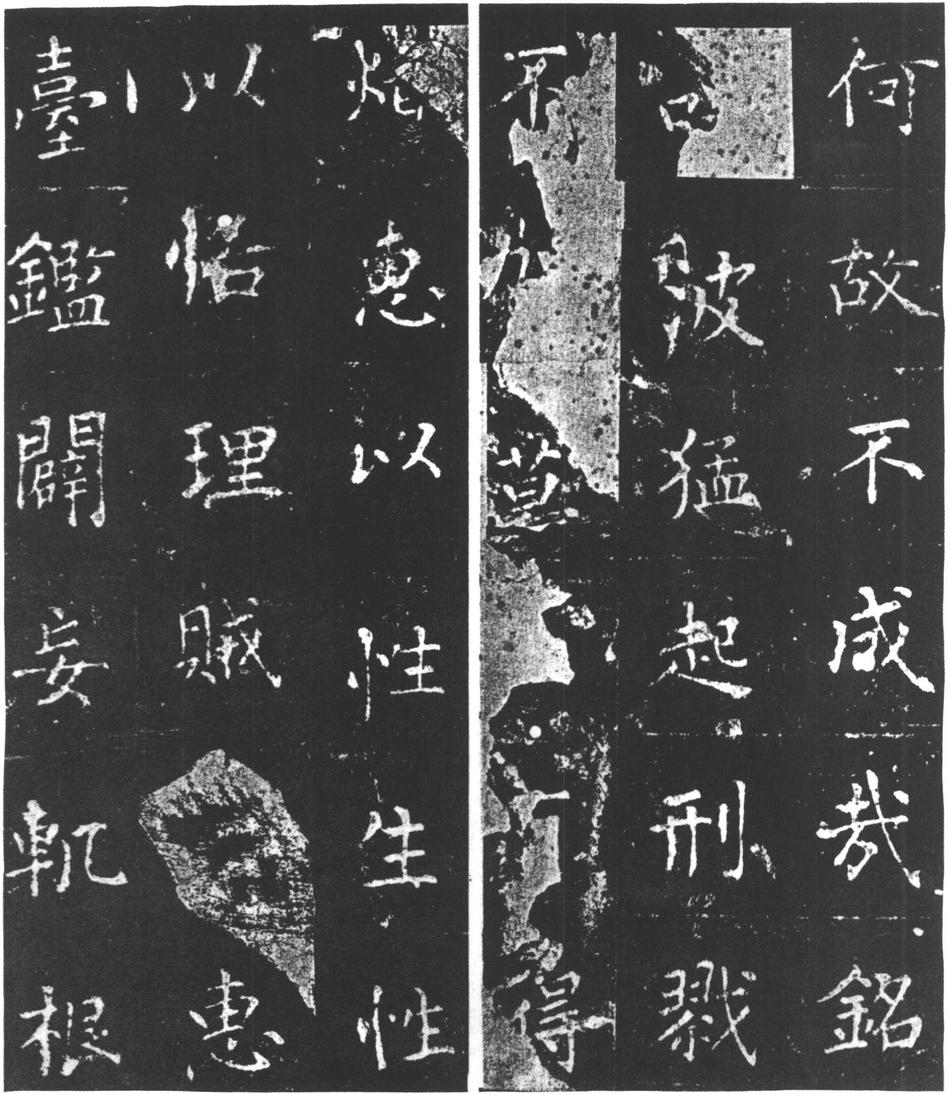 何故不成哉銘
皷猛起刑戮
不
惠以性生性
以恬理賊惠
臺鑑闢妄軌根